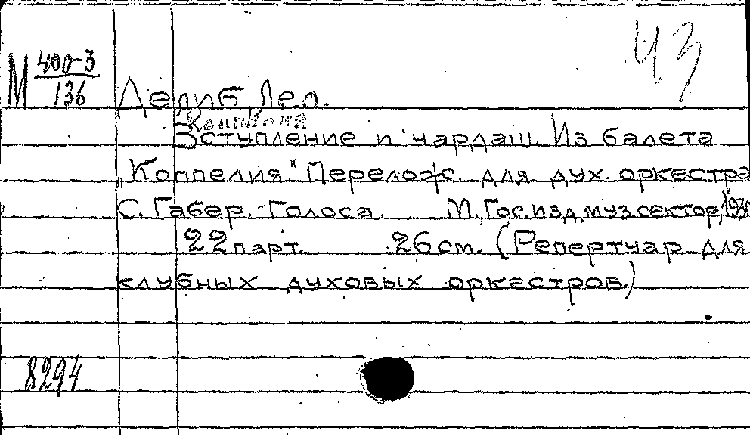 43
М 400-3
136
Делиб, Лео.
Коппелия
Вступление и чардаш. Из балета
„Коппелия" Перелож. для дух. оркестра
С. Габер. Голоса. М., Гос. изд. муз. сектор,
22 парт. 26 см. (Репертуар для
клубных духовых оркестров.)
8294